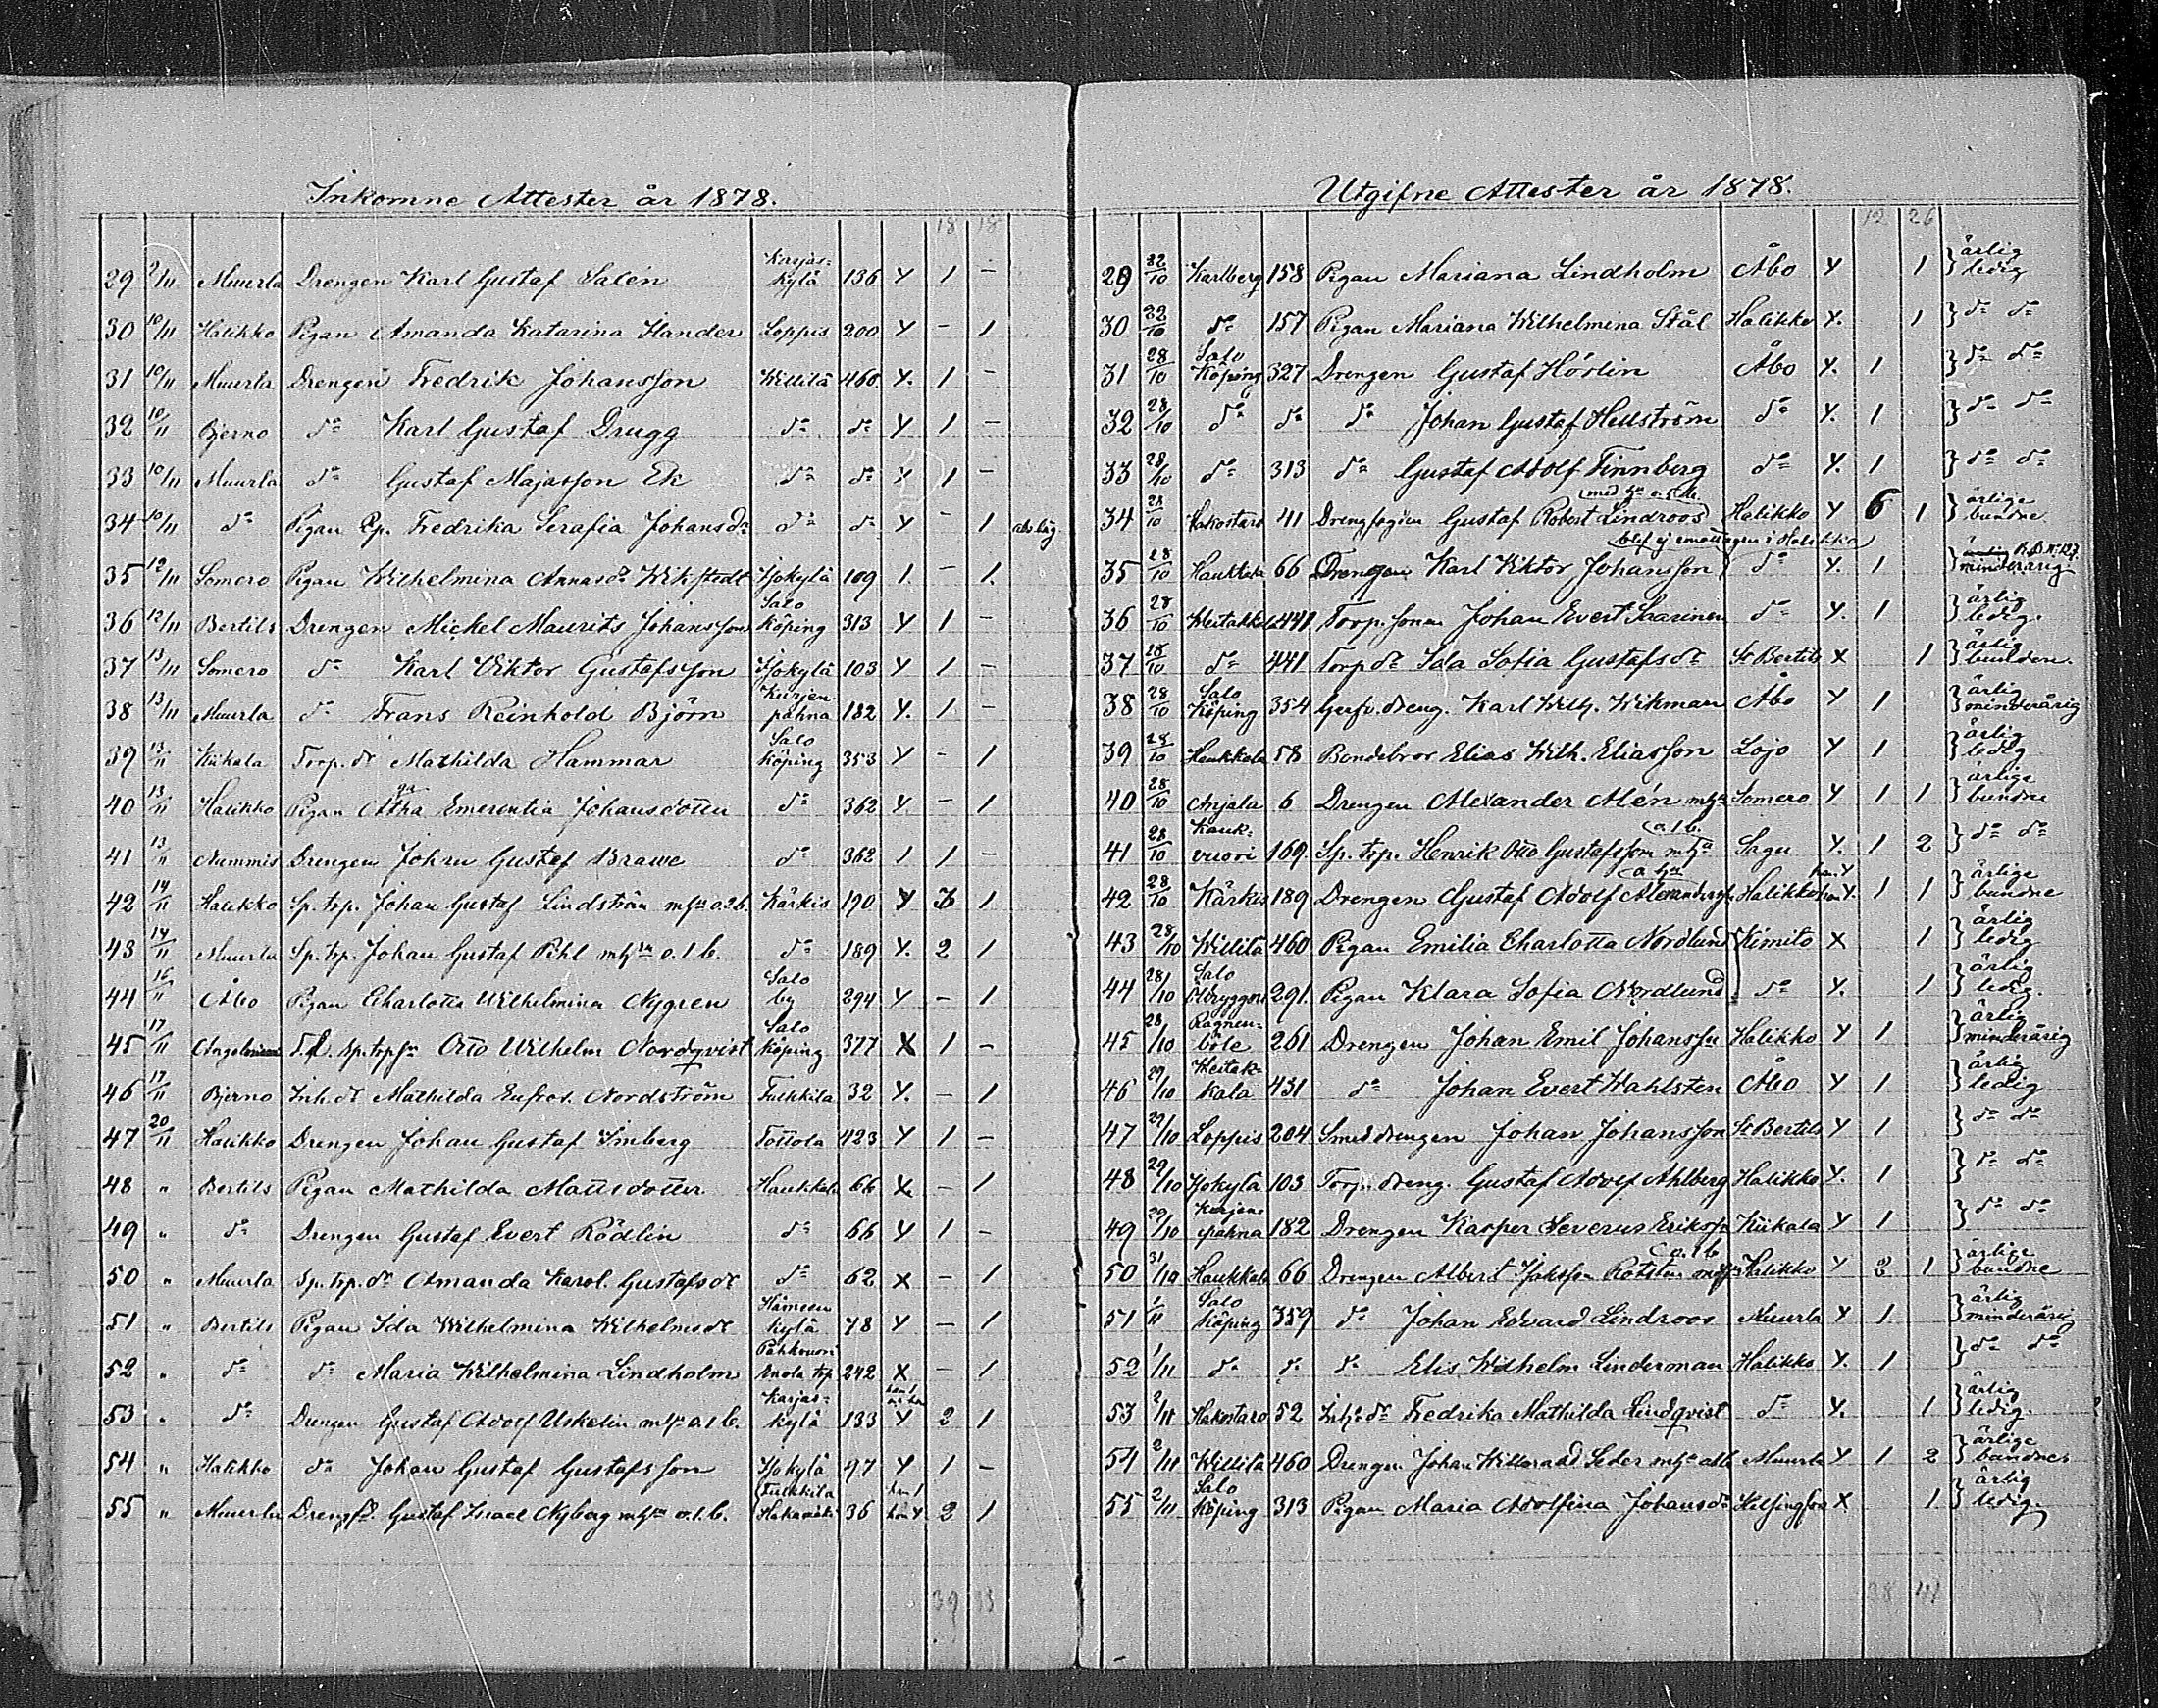 Inkomne Attester år 1878.
18 18
29 9/11 Muurla Drengen Karl Gustaf Salén Karjaskylä 136 Y 1 –
30 10/11 Halikko Pigan Amanda Katarina Hander Loppis 200 Y – 1
31 10/11 Muurla Drengen Fredrik Johansson Willilä 460 Y. 1 –
32 10/11 Bjerno do Karl Gustaf Drugg do do Y 1 –
33 10/11 Muurla do Gustaf Majasson Ek do do Y 1 –
34 10/11 do Pigan Ep. Fredrika Serafia Johansdr do do Y – 1
35 12/11 Somero Pigan Wilhelmina Annasdr Wikstedt Ijokylä 109 1. – 1.
36 12/11 Bertils Drengen Mickel Maurits Johansson Salo Köping 313 Y 1 –
37 13/11 Somero do Karl Viktor Gustafsson Ijokylä 103 Y 1 –
38 13/11 Muurla do Frans Reinhold Björn Kurjenpahna 182 Y. 1 –
39 13/11 Kiikala Torp. dr Mathilda Hammar Salo Köping 353 Y – 1
40 13/11 Halikko Pigan Emerentia Johansdotter do 362 Y. – 1
41 13/11 Nummis Drengen Johan Gustaf Brawe do 362 1 1 –
42 14/11 Halikko Sp. trp. Johan Gustaf Lindström m hu o. 2 b. Kärkis 190 Y 3 1
43 14/11 Muurla Sp. trp. Johan Gustaf Pihl m hu o. 1 b. do 189 Y. 2 1
44 16/11 Åbo Pigan Charlotta Wilhelmina Nygren Salo by 294 Y – 1
45 17/11 Angelniemi sp. trp Otto Wilhelm Nordqvist Salo Köping 377 X 1 –
46 17/11 Bjerno Inh. dr Mathilda Eufros. Nordström Fulkkila 32 Y. – 1
47 20/11 Halikko Drengen Johan Gustaf Imberg Tottola 423 Y 1 –
48 " Bertils Pigan Mathilda Mattsdotter Haukkala 66 X – 1
49 " do Drengen Gustaf Evert Rödlin do 66 Y 1 –
50 " Muurla Sp. trp. dr Amanda Karol. Gustafsdr do 62 X – 1
51 " Bertils Pigan Ida Wilhelmina Wilhelmsdr Hämeenkylä 78 Y – 1
52 " do do Maria Wilhelmina Lindholm trp 242 X – 1
53 " do Drengen Gustaf Adolf Uskelin m hu o. 1 b. Karjaskylä 133 Y 2 1
54 " Halikko do Johan Gustaf Gustafsson Ijokylä 97 Y 1 –
55 " Muurla Gustaf Israel Nyberg m hu o. 1 b. Fulkkila 36 han 1 hon Y 2 1
39
Utgifne Attester år 1878.
12 26
29 22/10 Karlberg 158 Pigan Mariana Lindholm Åbo Y 1 } ärlig ledig
30 22/10 do 157 Pigan Mariana Wilhelmina Stål Halikko Y. 1 } do do
31 28/10 Salo Köping 327 Drengen Gustaf Hörlin Åbo Y. 1 } do do
32 28/10 do do do Johan Gustaf Hellström do Y. 1 } do do
33 28/10 do 313 do Gustaf Adolf Finnberg do Y. 1 } do do
34 28/10 Hakostaro 41 Gustaf Robert Lindroos Halikko Y 6 1 } ärlige bundne
blef ej emottagen i Halikko
35 28/10 Haukkala 66 Drengen Karl Viktor Johansson do Y. 1 } minderårig
36 28/10 441 Torp. sonen Johan Evert Saarinen do Y. 1 } ärlig ledig.
37 28/10 do 441 Torp dr Ida Sofia Gustafsdr St Bertils X 1 } ärlig bunden.
38 28/10 Salo Köping 354 Garfv. dreng. Karl Wilh. Wikman Åbo Y 1 } ärlig minderårig
39 28/10 Haukkala 58 Bondebror Elias Wilh. Eliasson Lojo Y 1 } ärlig ledig
40 28/10 Anjala 6 Drengen Alexander Alén m hu Somero Y 1 1 } ärlige bundne
41 28/10 Kaukvuori 169 Sp. trp. Henrik Otto Gustafsson m hu o. 1 b. Sagu Y. 1 2 } do do
42 28/10 Kärkis 189 Drengen Gustaf Adolf Alexandersson Halikko 1 1 } ärlige bundne
43 28/10 Willilä 460 Pigan Emilia Charlotta Nordlund Kimito X 1 } ärlig ledig
44 28/10 Salo Ölbryggeri 291. Pigan Klara Sofia Nordlund do Y. 1 } ärlig ledig.
45 28/10 Ragnenböle 261 Drengen Johan Emil Johansson Halikko Y 1 } ärlig minderårig
46 29/10 431 do Johan Evert Wahlsten Åbo Y 1 } ärlig ledig
47 29/10 Loppis 204 Smeddrengen Johan Johansson St Bertils Y 1 } do do
48 29/10 Ijokylä 103 Torp. dreng. Gustaf Adolf Ahlberg Halikko Y. 1 } do do
49 29/10 Kurjenpahna 182 Drengen Kasper Severus Eriksson Kiikala Y 1 } do do
50 31/10 Haukkala 66 Drengen Albert Jaksson Rotsten o. 1 b. Halikko Y 2 1 } ärlige bundne
51 1/11 Salo Köping 359 do Johan Edvard Lindroos Muurla Y 1 } ärlig minderårig
52 1/11 do do do Elis Wilhelm Linderman Halikko Y. 1 } do do
53 2/11 Hakostaro 52 Inh. dr Fredrika Mathilda Lindqvist do Y. 1 } ärlig ledig.
54 2/11 Willilä 460 Drengen Johan Seder m hu Muurla Y 1 2 } ärlige bundne
55 2/11 Salo Köping 313 Pigan Maria Adolfina Johansdr Helsingfors X 1 } ärlig ledig.